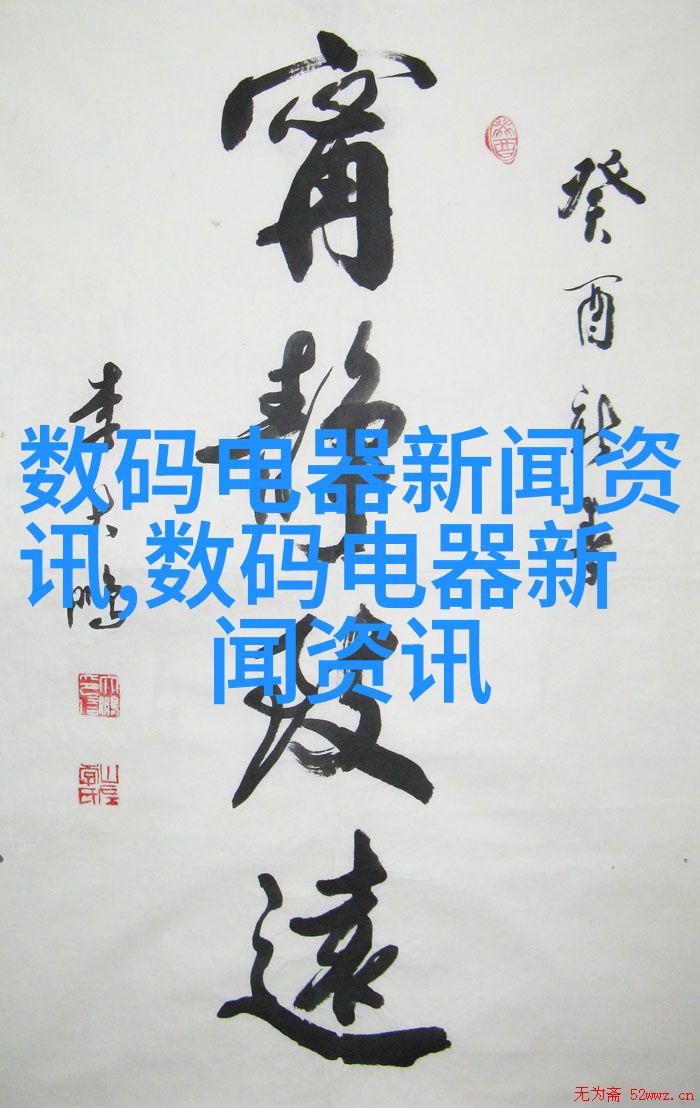 癸酉新春
甯静致远
李大鹏
数码电器新闻资
讯,数码电器新
闻资讯
无为斋 52wwz.cn